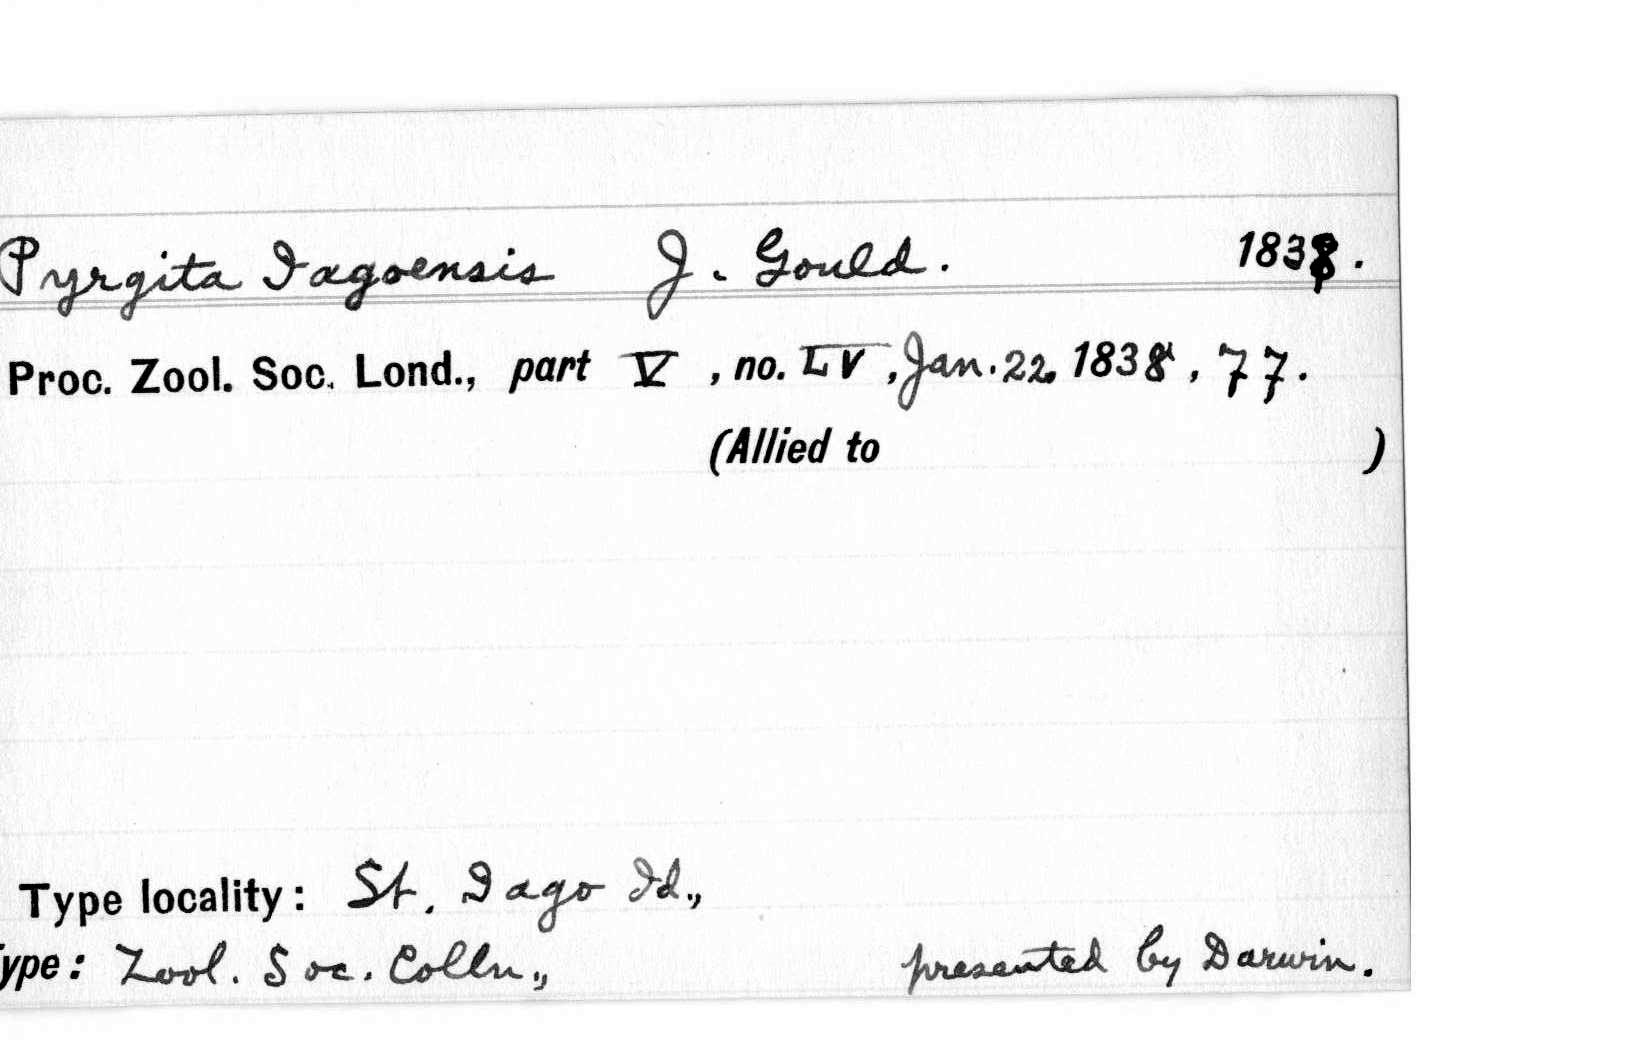 Pyrgita Iagoensis J. Gould. 1838.
Proc. Zool. Soc. Lond., part V, no. LV, Jan. 22. 1838, 77.
(Allied to )
Type locality: St. Iago Id.,
ype: Zool. Soc. Colln., presented by Darwin.